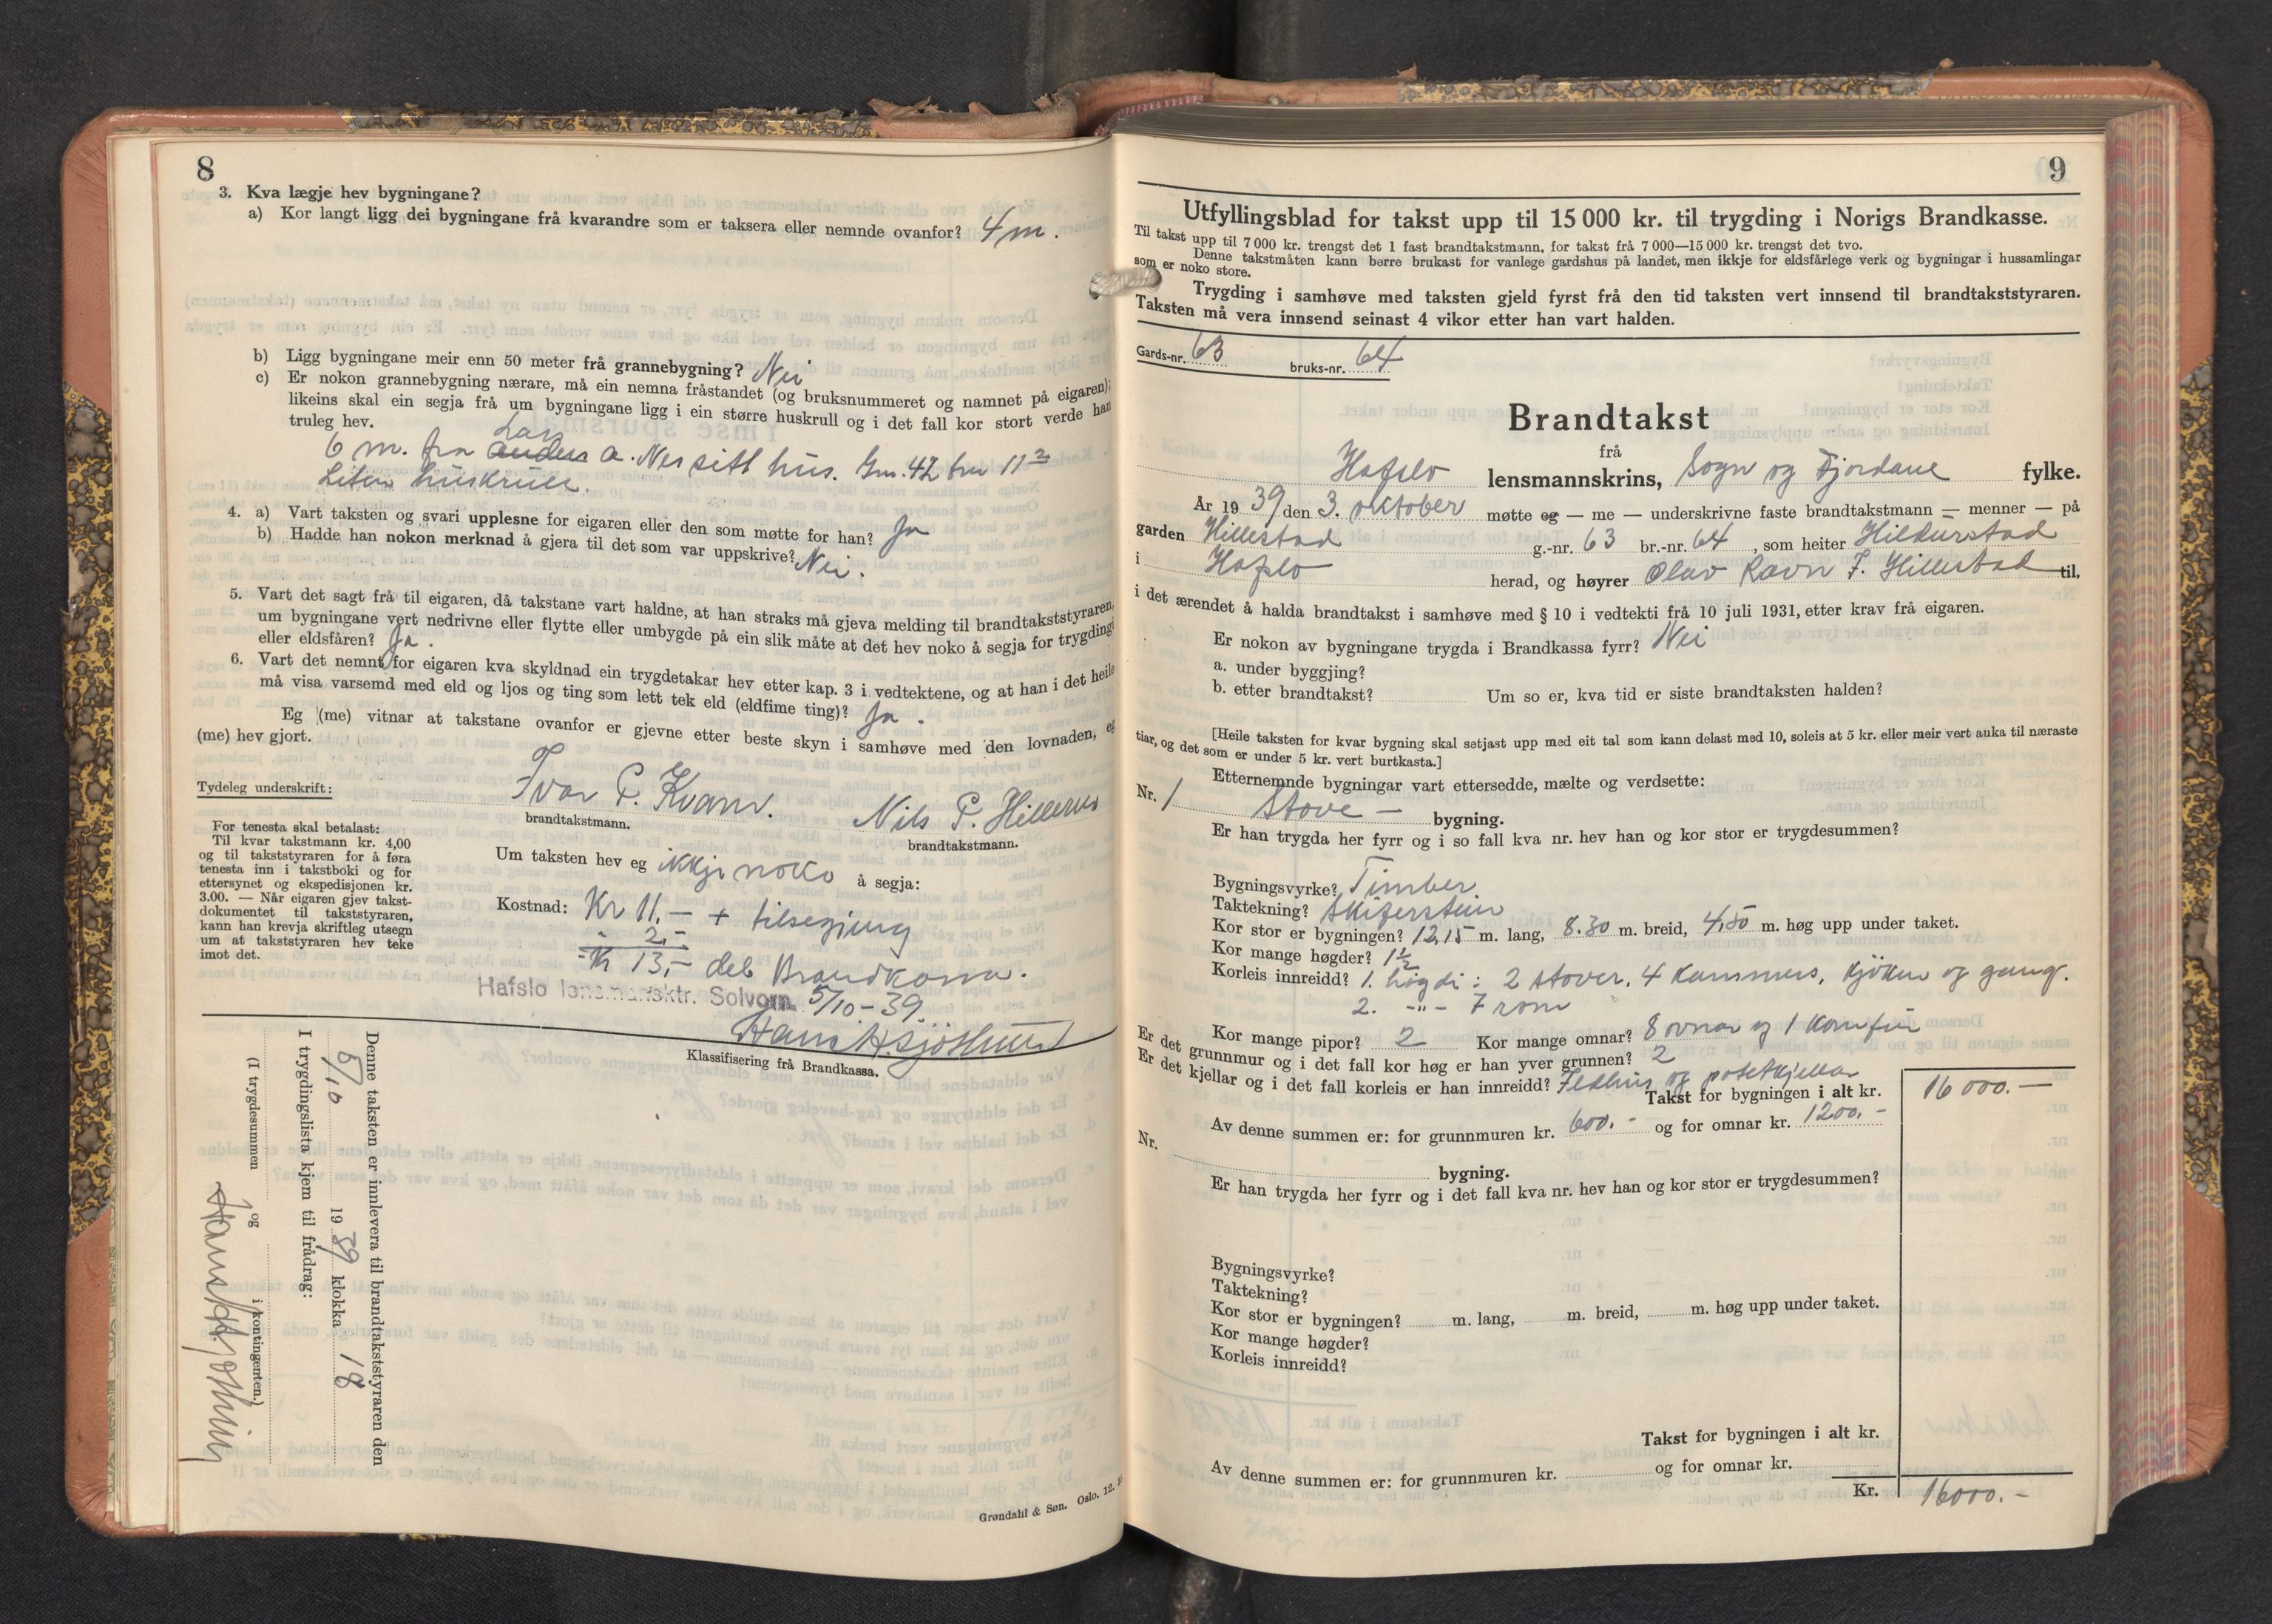 8
3. Kva lægje hev bygningane?
a) Kor langt ligg dei bygningane frå kvarandre som er taksera eller nemnde ovanfor? 4 m.
b) Ligg bygningane meir enn 50 meter frå grannebygning? Nei
c) Er nokon grannebygning nærare, må ein nemna fråstandet (og bruksnummeret og namnet på eigaren);
likeins skal ein segja frå um bygningane ligg i ein større huskrull og i det fall kor stort verde han
truleg hev.
Lars
6 m. fra Anders A. Nes sitt hus. Gnr. 42 bnr 11
Liten huskrull.
4. a) Vart taksten og svari upplesne for eigaren eller den som møtte for han? Ja
b) Hadde han nokon merknad å gjera til det som var uppskrive? Nei.
5. Vart det sagt frå til eigaren, då takstane vart haldne, at han straks må gjeva melding til brandtakststyraren,
um bygningane vert nedrivne eller flytte eller umbygde på ein slik måte at det hev noko å segja for trygdingi
eller eldsfåren? Ja.
6. Vart det nemnt for eigaren kva skyldnad ein trygdetakar hev etter kap. 3 i vedtektene, og at han i det heile
må visa varsemd med eld og ljos og ting som lett tek eld (eldfime ting)? Ja.
Eg (me) vitnar at takstane ovanfor er gjevne etter beste skyn i samhøve med den lovnaden, eg
(me) hev gjort.
Tydeleg underskrift: Ivar P. Kvam. Nils P. Hillestad
brandtakstmann. brandtakstmann.
For tenesta skal betalast:
Til kvar takstmann kr. 4,00
og til takststyraren for å føra
tenesta inn i takstboki og for
ettersynet og ekspedisjonen kr.
3.00. — Når eigaren gjev takst-
dokumentet til takststyraren,
kann han krevja skriftleg utsegn
um at takststyraren hev teke
imot det.
Um taksten hev eg ikkje noko å segja:
Kostnad: Kr 11.- + tilsegjing
" 2,-
= Kr 13,- deb Brandkassa.
Hafslo lensmansktr. Solvorn. 5/10-39.
Klassifisering frå Brandkassa.
Denne taksten er innlevera til brandtakststyraren den
5/10 1939 klokka 18
I trygdingslista kjem til frådrag:
(I trygdesummen og i kontingenten.)
Grøndahl & Søn. Oslo. 12.
9
Utfyllingsblad for takst upp til 15 000 kr. til trygding i Norigs Brandkasse.
Til takst upp til 7 000 kr. trengst det 1 fast brandtakstmann, for takst frå 7 000—15 000 kr. trengst det tvo.
Denne takstmåten kann berre brukast for vanlege gardshus på landet, men ikkje for eldsfårlege verk og bygningar i hussamlingar
som er noko store.
Trygding i samhøve med taksten gjeld fyrst frå den tid taksten vert innsend til brandtakststyraren.
Taksten må vera innsend seinast 4 vikor etter han vart halden.
Gards-nr. 63 bruks-nr. 64
Brandtakst
frå
Hafslo lensmannskrins, Sogn og Fjordane fylke.
År 1939 den 3. oktober møtte eg — me — underskrivne faste brandtakstmann — menner — på
garden Hillestad g.-nr. 63 br.-nr. 64, som heiter Hildurstad
i Hafslo herad, og høyrer Olav Ravn F. Hillestad til,
i det ærendet å halda brandtakst i samhøve med § 10 i vedtekti frå 10 juli 1931, etter krav frå eigaren.
Er nokon av bygningane trygda i Brandkassa fyrr? Nei
a. under byggjing?
b. etter brandtakst? Um so er, kva tid er siste brandtaksten halden?
[Heile taksten for kvar bygning skal setjast upp med eit tal som kann delast med 10, soleis at 5 kr. eller meir vert auka til næraste
tiar, og det som er under 5 kr. vert burtkasta.]
Etternemnde bygningar vart ettersedde, mælte og verdsette:
Nr. 1 Stove- bygning.
Er han trygda her fyrr og i so fall kva nr. hev han og kor stor er trygdesummen?
Bygningsvyrke? Timber
Taktekning? Skiferstein
Kor stor er bygningen? 12,15 m. lang, 8.30 m. breid, 4,50 m. høg upp under taket.
Kor mange høgder? 1½
Korleis innreidd? 1. høgdi: 2 stover, 4 kammers, kjøken og gang.
2. -"- 7 rom
Kor mange pipor? 2 Kor mange omnar? 8 ovnar og 1 komfür
Er det grunnmur og i det fall kor høg er han yver grunnen? 2
Er det kjellar og i det fall korleis er han innreidd? Feskhus og potetkjellar
Takst for bygningen i alt kr. 16 000.—
Av denne summen er: for grunnmuren kr. 600.- og for omnar kr. 1200.-
Nr. bygning.
Er han trygda her fyrr og i det fall kva nr. hev han og kor stor er trygdesummen?
Bygningsvyrke?
Taktekning?
Kor stor er bygningen? m. lang, m. breid, m. høg upp under taket.
Kor mange høgder?
Korleis innreidd?
Takst for bygningen i alt kr.
Av denne summen er: for grunnmuren kr. og for omnar kr.
Kr. 16000.-